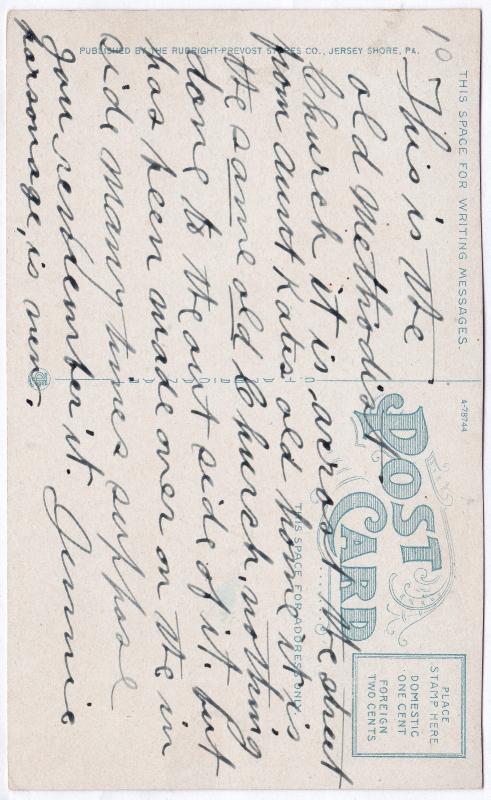 10
PUBLISHED BY THE RUBRIGHT-PREVOST STORES CO., JERSEY SHORE, PA.
THIS SPACE FOR WRITING MESSAGES.
4-78744
POST
CARD
THIS SPACE FOR ADDRESS ONLY.
PLACE
STAMP HERE
DOMESTIC
ONE CENT
FOREIGN
TWO CENTS
This is the
old Methodist
Church it is across the street
from aunt Kates old home it is
the same old Church, nothing
done to the out side of it. but
has been made over on the in
side many times suppose
you remember it. Jennie
parsonage, is new,